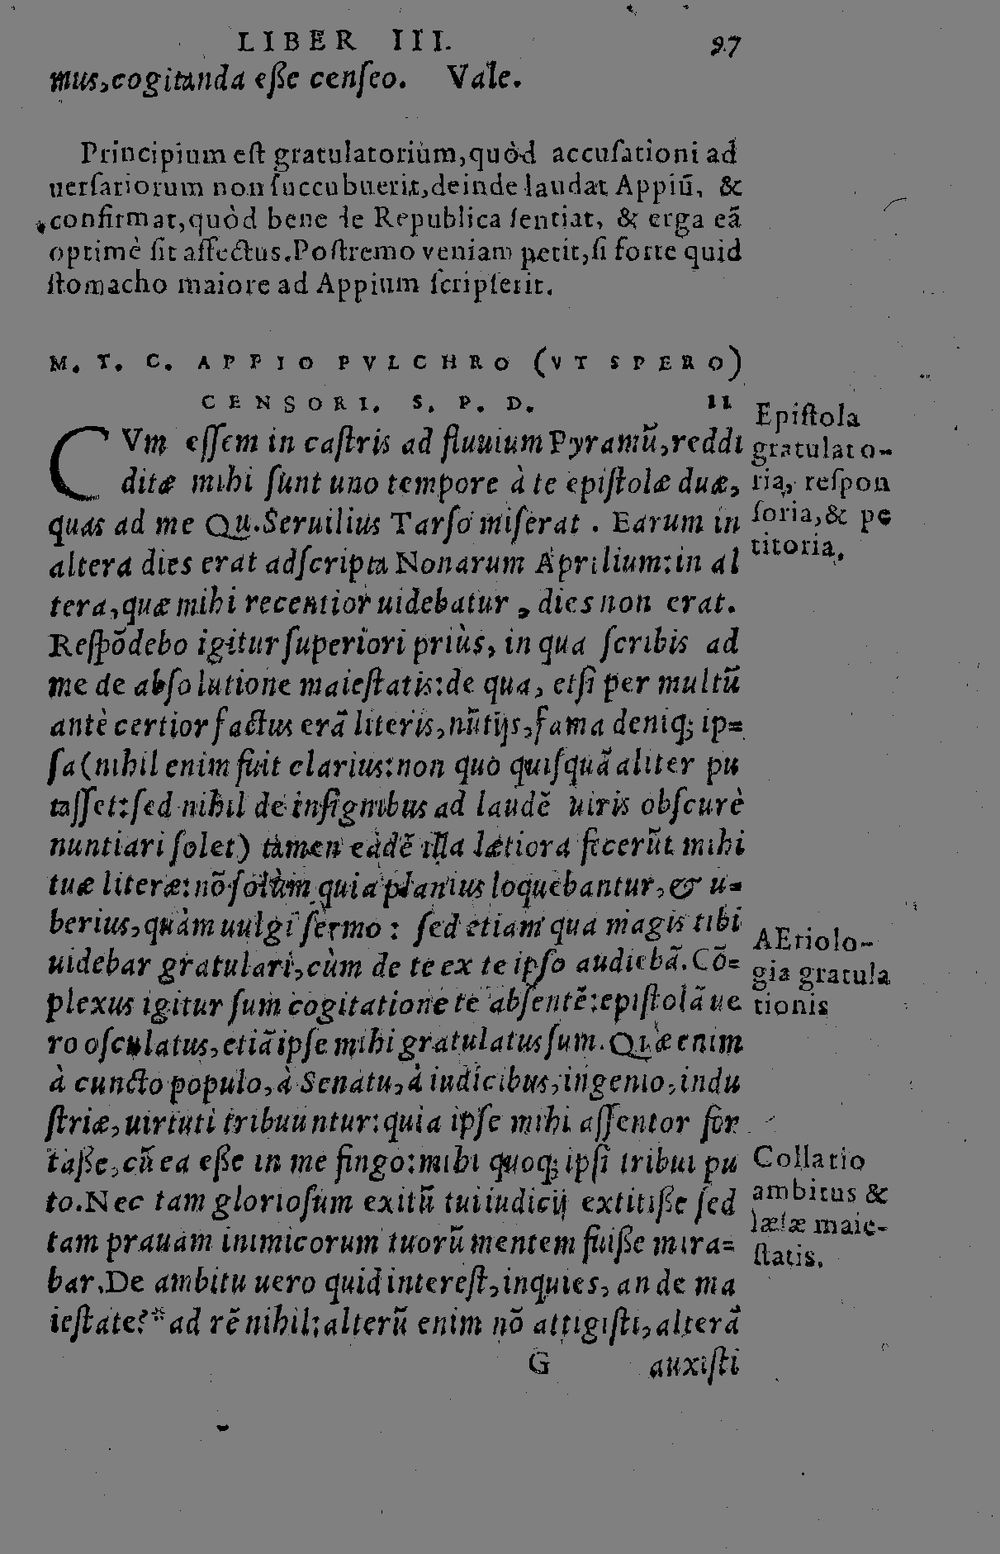 LIBER III. 97
mus,cogitanda eße censeo. Vale.
Principium est gratulatorium,quòd accusationi ad
uersariorum non succubuerit,deinde laudat Appiũ, &
confirmat,quòd bene de Republica sentiat, & erga eã
optimè sit affectus.Postremo veniam petit,si forte quid
stomacho maiore ad Appium scripserit.
M. T. C. APPIO PVLCHRO (VT SPERO)
CENSORI. S. P. D. II
CVm essem in castris ad fluuium Pyramũ,reddi
ditæ mihi sunt uno tempore à te epistolæ duæ,
quas ad me Qu.Seruilius Tarso miserat . Earum in
altera dies erat adscripta Nonarum Aprilium:in al
tera,quæ mihi recentior uidebatur , dies non erat.
Respõdebo igitur superiori priùs, in qua scribis ad
me de absolutione maiestatis:de qua, etsi per multũ
antè certior factus erã literis,nũtijs,fama deniq; ip=
sa(nihil enim fuit clarius:non quo quisquã aliter pu
tasset:sed nihil de insignibus ad laudẽ uiris obscurè
nuntiari solet) tamen eadẽ illa lætiora fecerũt mihi
tuæ literæ:nõ solùm quia planius loquebantur,& u=
berius,quàm uulgi sermo : sed etiam qua magis tibi
uidebar gratulari,cùm de te ex te ipso audiebã.Cõ=
plexus igitur sum cogitatione te absentẽ:epistolã ue
ro osculatus,etiã ipse mihi gratulatus sum.Quæ enim
à cuncto populo,à Senatu,à iudicibus,ingenio,indu
striæ,uirtuti tribuuntur:quia ipse mihi assentor for
taße,cũ ea eße in me fingo:mihi quoq; ipsi tribui pu
to.Nec tam gloriosum exitũ tui iudicij extitiße sed
tam prauam inimicorum tuorũ mentem fuiße mira=
bar.De ambitu uero quid interest,inquies, an de ma
iestate?* ad rẽ nihil:alterũ enim nõ attigisti,alterã
G auxisti
Epistola
gratulato-
ria, respon
soria,& pe
titoria.
AEtiolo-
gia gratula
tionis
Collatio
ambitus &
læsæ maie-
statis.